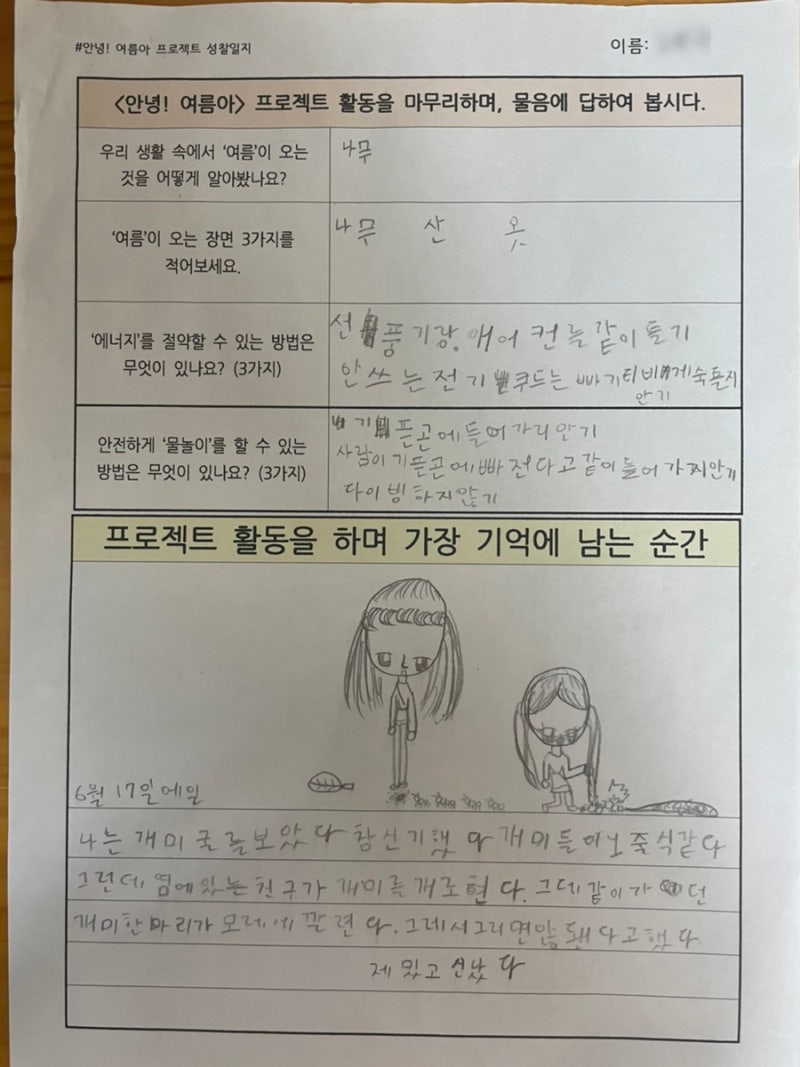 #안녕! 여름아 프로젝트 성찰일지
이름:
<안녕! 여름아> 프로젝트 활동을 마무리하며, 물음에 답하여 봅시다.
우리 생활 속에서 ‘여름’이 오는
것을 어떻게 알아봤나요?
나무
‘여름’이 오는 장면 3가지를
적어보세요.
나무 산 옷
‘에너지’를 절약할 수 있는 방법은
무엇이 있나요? (3가지)
선풍기랑 애어컨늘 같이 틀기
안쓰는 전기 쿠드는 빠기 티비 게숙 틀지
안기
안전하게 ‘물놀이’를 할 수 있는
방법은 무엇이 있나요? (3가지)
기픈곤에 들어가리 안기
사람이 기픈곤에 빠전다고 같이 들어가찌안기
다이빙하지않기
프로젝트 활동을 하며 가장 기억에 남는 순간
6월 17일에일
나는 개미굴를 보았다 참 신기했다 개미들이 줄식같다
그런데 엽에있는 친구가 개미를 개로현다. 그데 같이가던
개미한마리가 모레에 깔련다. 그레서 그러면 않됗다고 했다
제밌고 신났다